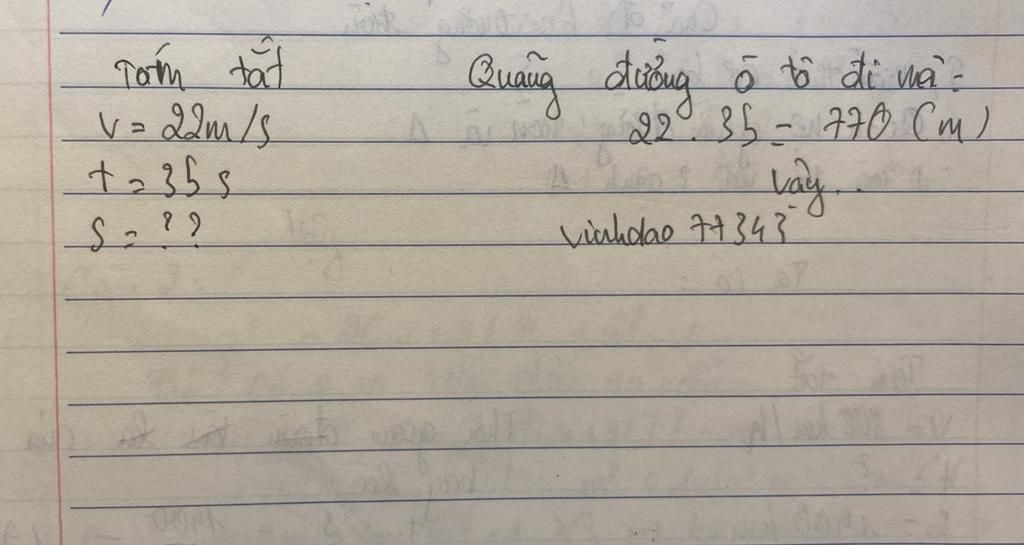 Tóm tắt
v = 22m/s
t = 35 s
s = ??
Quãng đường ô tô đi là:
22 . 35 = 770 (m)
Vậy...
vinhdao 77343